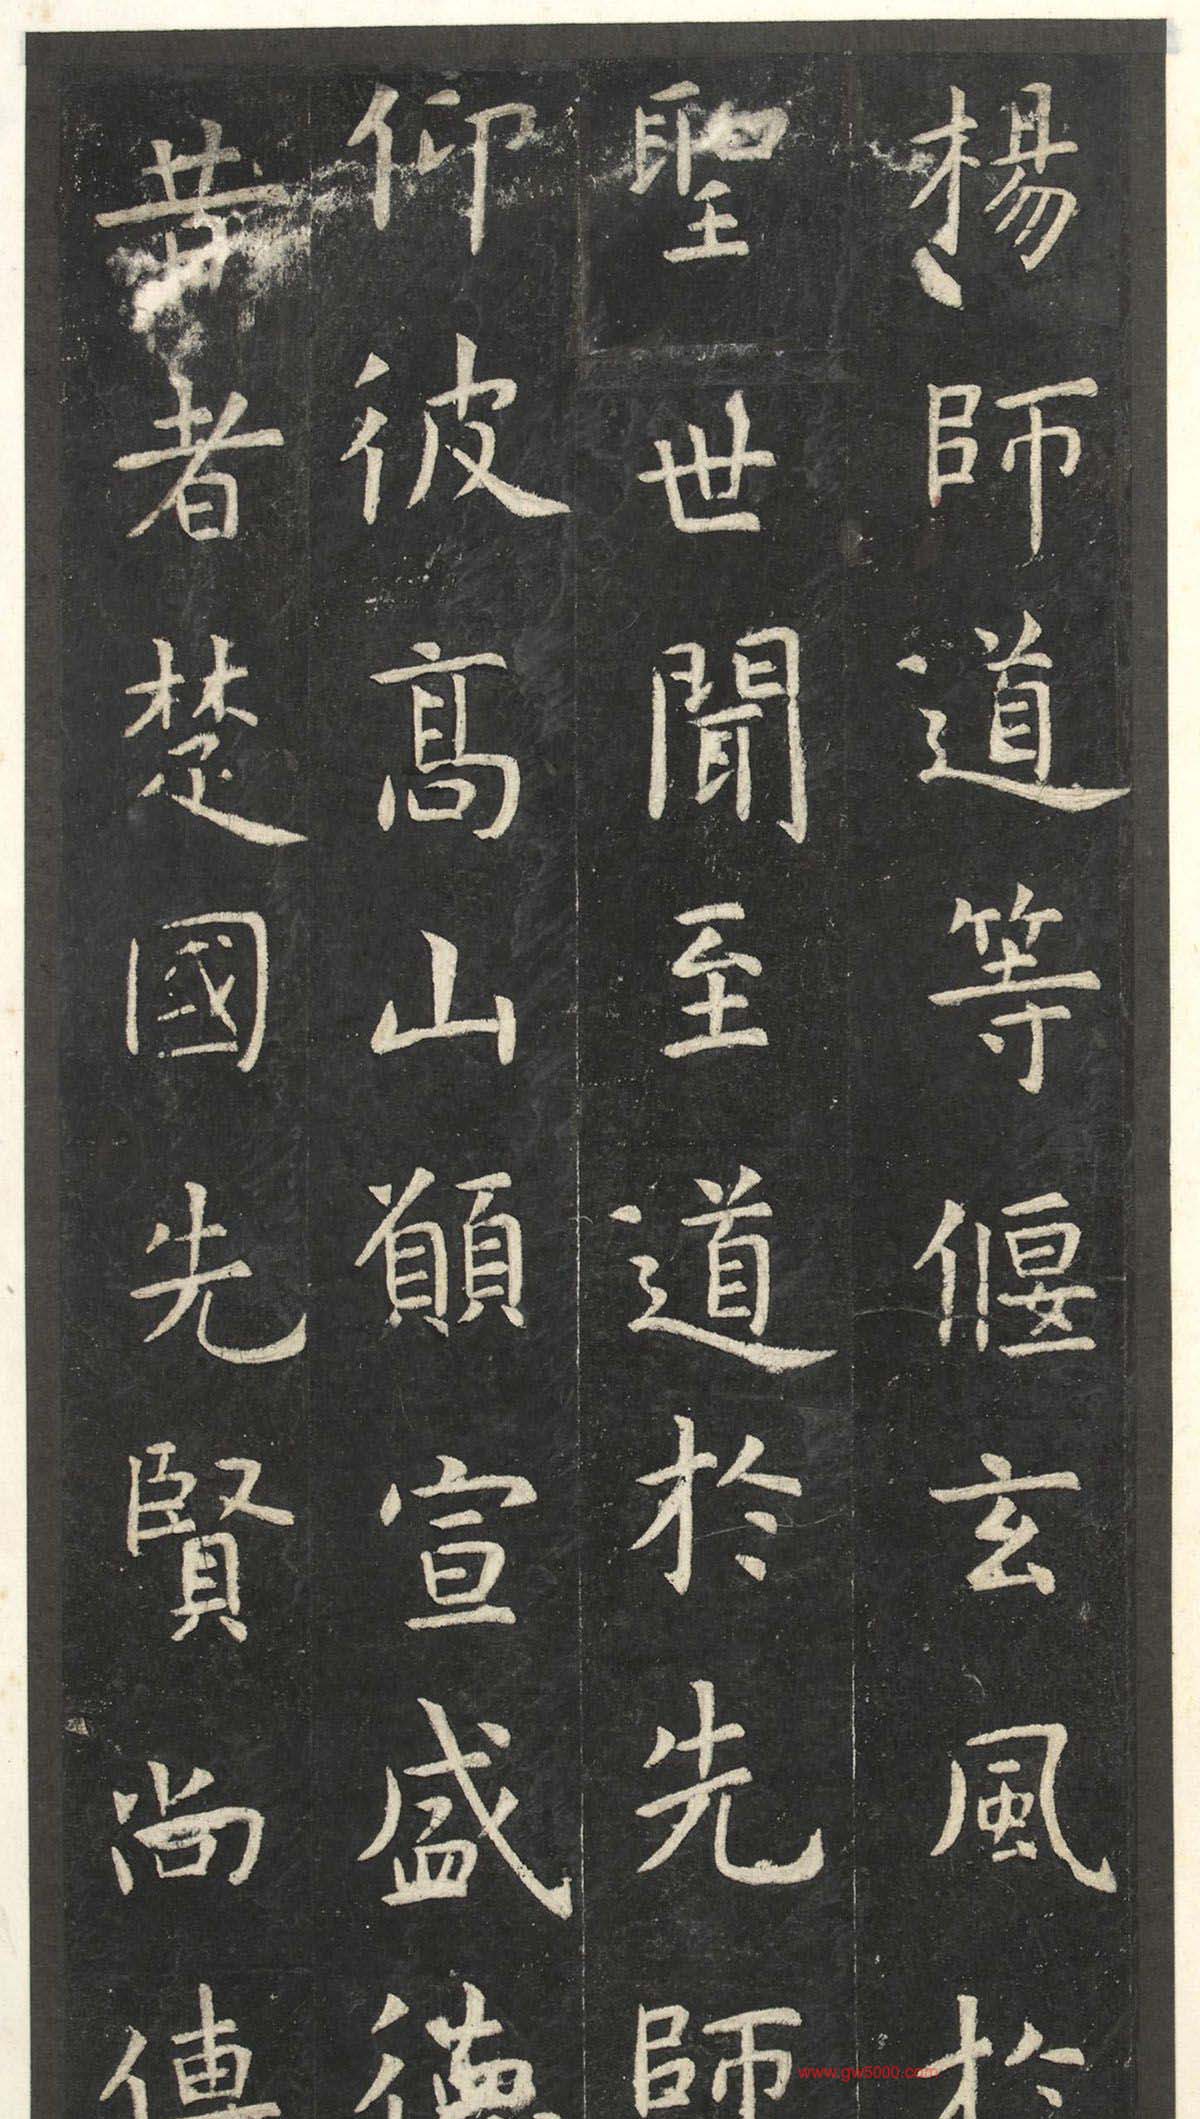 楊師道等偃玄風於
聖世聞至道於先師
仰彼高山願宣盛德
昔者楚國先賢尚傳
www.gw5000.com